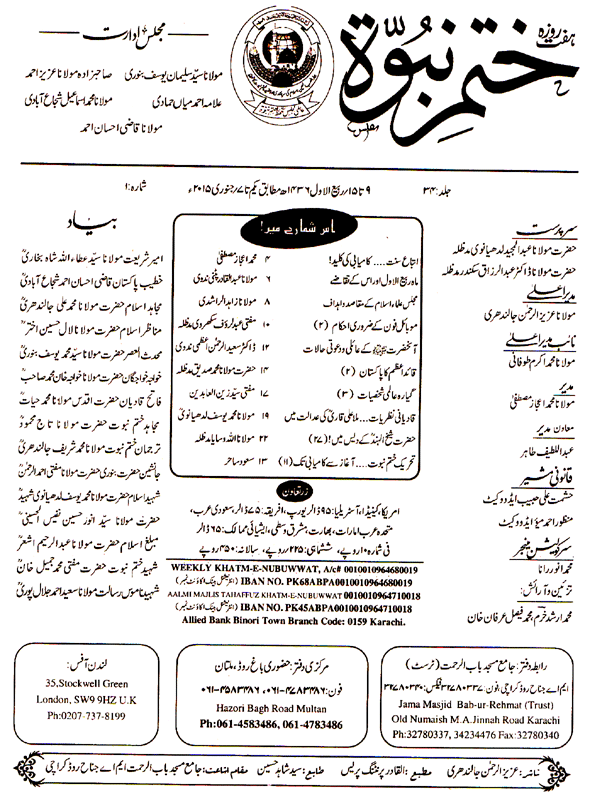 ہفت روزہ
ختم نبوۃ
مجلس ادارت
مولانا سید سلیمان یوسف بنوری صاحبزادہ مولانا عزیز احمد
علامہ احمد میاں حمادی مولانا محمد اسماعیل شجاع آبادی
مولانا قاضی احسان احمد
جلد: ۳۴ ۹ تا ۱۵ / ربیع الاول ۱۴۳۶ھ مطابق یکم تا ۷ / جنوری ۲۰۱۵ء شمارہ: ۱
سرپرست
حضرت مولانا عبدالمجید لدھیانوی مدظلہ
حضرت مولانا ڈاکٹر عبدالرزاق سکندر مدظلہ
مدیر اعلیٰ
مولانا عزیز الرحمٰن جالندھری
نائب مدیر اعلیٰ
مولانا محمد اکرم طوفانی
مدیر
مولانا محمد اعجاز مصطفیٰ
معاون مدیر
عبداللطیف طاہر
قانونی مشیر
حشمت علی حبیب ایڈووکیٹ
منظور احمد میو ایڈووکیٹ
سرکولیشن منیجر
محمد انور رانا
تزئین و آرائش:
محمد ارشد خرم، محمد فیصل عرفان خان
اس شمارے میں!
اتباع سنت.... کامیابی کی کلید! ۴ محمد اعجاز مصطفیٰ
ماہ ربیع الاول اور اس کے تقاضے ۶ مولانا عبدالقادر پٹنی ندوی
مجلس علماء اسلام کے مقاصد و اہداف ۸ مولانا زاہد الراشدی
موبائل فون کے ضروری احکام (۲) ۱۰ مفتی عبدالرؤف سکھروی مدظلہ
آنحضرت ﷺ کے عائلی و دعوتی حالات ۱۲ ڈاکٹر سعید الرحمٰن اعظمی ندوی
قائد اعظم کا پاکستان (۲) ۱۴ مولانا محمد صدیق مدظلہ
گیارہ عالمی شخصیات (۳) ۱۷ مفتی سید زین العابدین
قادیانی نظریات.... ملا علی قاری کی عدالت میں ۱۹ مولانا محمد یوسف لدھیانوی
حضرت شیخ الہند کے دیس میں! (۲۷) ۲۲ مولانا اللہ وسایا مدظلہ
تحریک ختم نبوت.... آغاز سے کامیابی تک (۱۱) ۱۳ سعود ساحر
زر تعاون
امریکا، کینیڈا، آسٹریلیا: ۹۵ ڈالر یورپ، افریقہ: ۷۵ ڈالر، سعودی عرب،
متحدہ عرب امارات، بھارت، مشرق وسطیٰ، ایشیائی ممالک: ۶۵ ڈالر
فی شمارہ ۱۰ روپے، ششماہی: ۲۲۵ روپے، سالانہ: ۴۵۰ روپے
WEEKLY KHATM-E-NUBUWWAT, A/c# 0010010964680019
IBAN NO. PK68ABPA0010010964680019 (انٹرنیشنل بینک اکاؤنٹ نمبر)
AALMI MAJLIS TAHAFFUZ KHATM-E-NUBUWWAT 0010010964710018
IBAN NO. PK45ABPA0010010964710018 (انٹرنیشنل بینک اکاؤنٹ نمبر)
Allied Bank Binori Town Branch Code: 0159 Karachi.
بیاد
امیر شریعت مولانا سید عطاء اللہ شاہ بخاری
خطیب پاکستان قاضی احسان احمد شجاع آبادی
مجاہد اسلام حضرت مولانا محمد علی جالندھری
مناظر اسلام حضرت مولانا لال حسین اختر
محدث العصر حضرت مولانا سید محمد یوسف بنوری
خواجہ خواجگان حضرت مولانا خواجہ خان محمد صاحب
فاتح قادیان حضرت اقدس مولانا محمد حیات
مجاہد ختم نبوت حضرت مولانا تاج محمود
ترجمان ختم نبوت حضرت مولانا محمد شریف جالندھری
جانشین حضرت بنوری حضرت مولانا مفتی احمد الرحمٰن
شہید اسلام حضرت مولانا محمد یوسف لدھیانوی شہید
حضرت مولانا سید انور حسین نفیس الحسینی
مبلغ اسلام حضرت مولانا عبدالرحیم اشعر
شہید ختم نبوت حضرت مفتی محمد جمیل خان
شہید ناموس رسالت مولانا سعید احمد جلال پوری
رابطہ دفتر: جامع مسجد باب الرحمت (ٹرسٹ)
ایم اے جناح روڈ کراچی، فون: ۳۲۷۸۰۳۳۷ فیکس: ۳۲۷۸۰۳۴۰
Jama Masjid Bab-ur-Rehmat (Trust)
Old Numaish M.A.Jinnah Road Karachi
Ph:32780337, 34234476 Fax:32780340
مرکزی دفتر: حضوری باغ روڈ، ملتان
فون: ۰۶۱-۴۷۸۳۴۸۶، ۰۶۱-۴۵۸۳۴۸۶
Hazori Bagh Road Multan
Ph:061-4583486, 061-4783486
لندن آفس:
35,Stockwell Green
London, SW9 9HZ U.K
Ph:0207-737-8199
ناشر: عزیز الرحمٰن جالندھری مطبع: القادر پرنٹنگ پریس طابع: سید شاہد حسین مقام اشاعت: جامع مسجد باب الرحمت ایم اے جناح روڈ کراچی